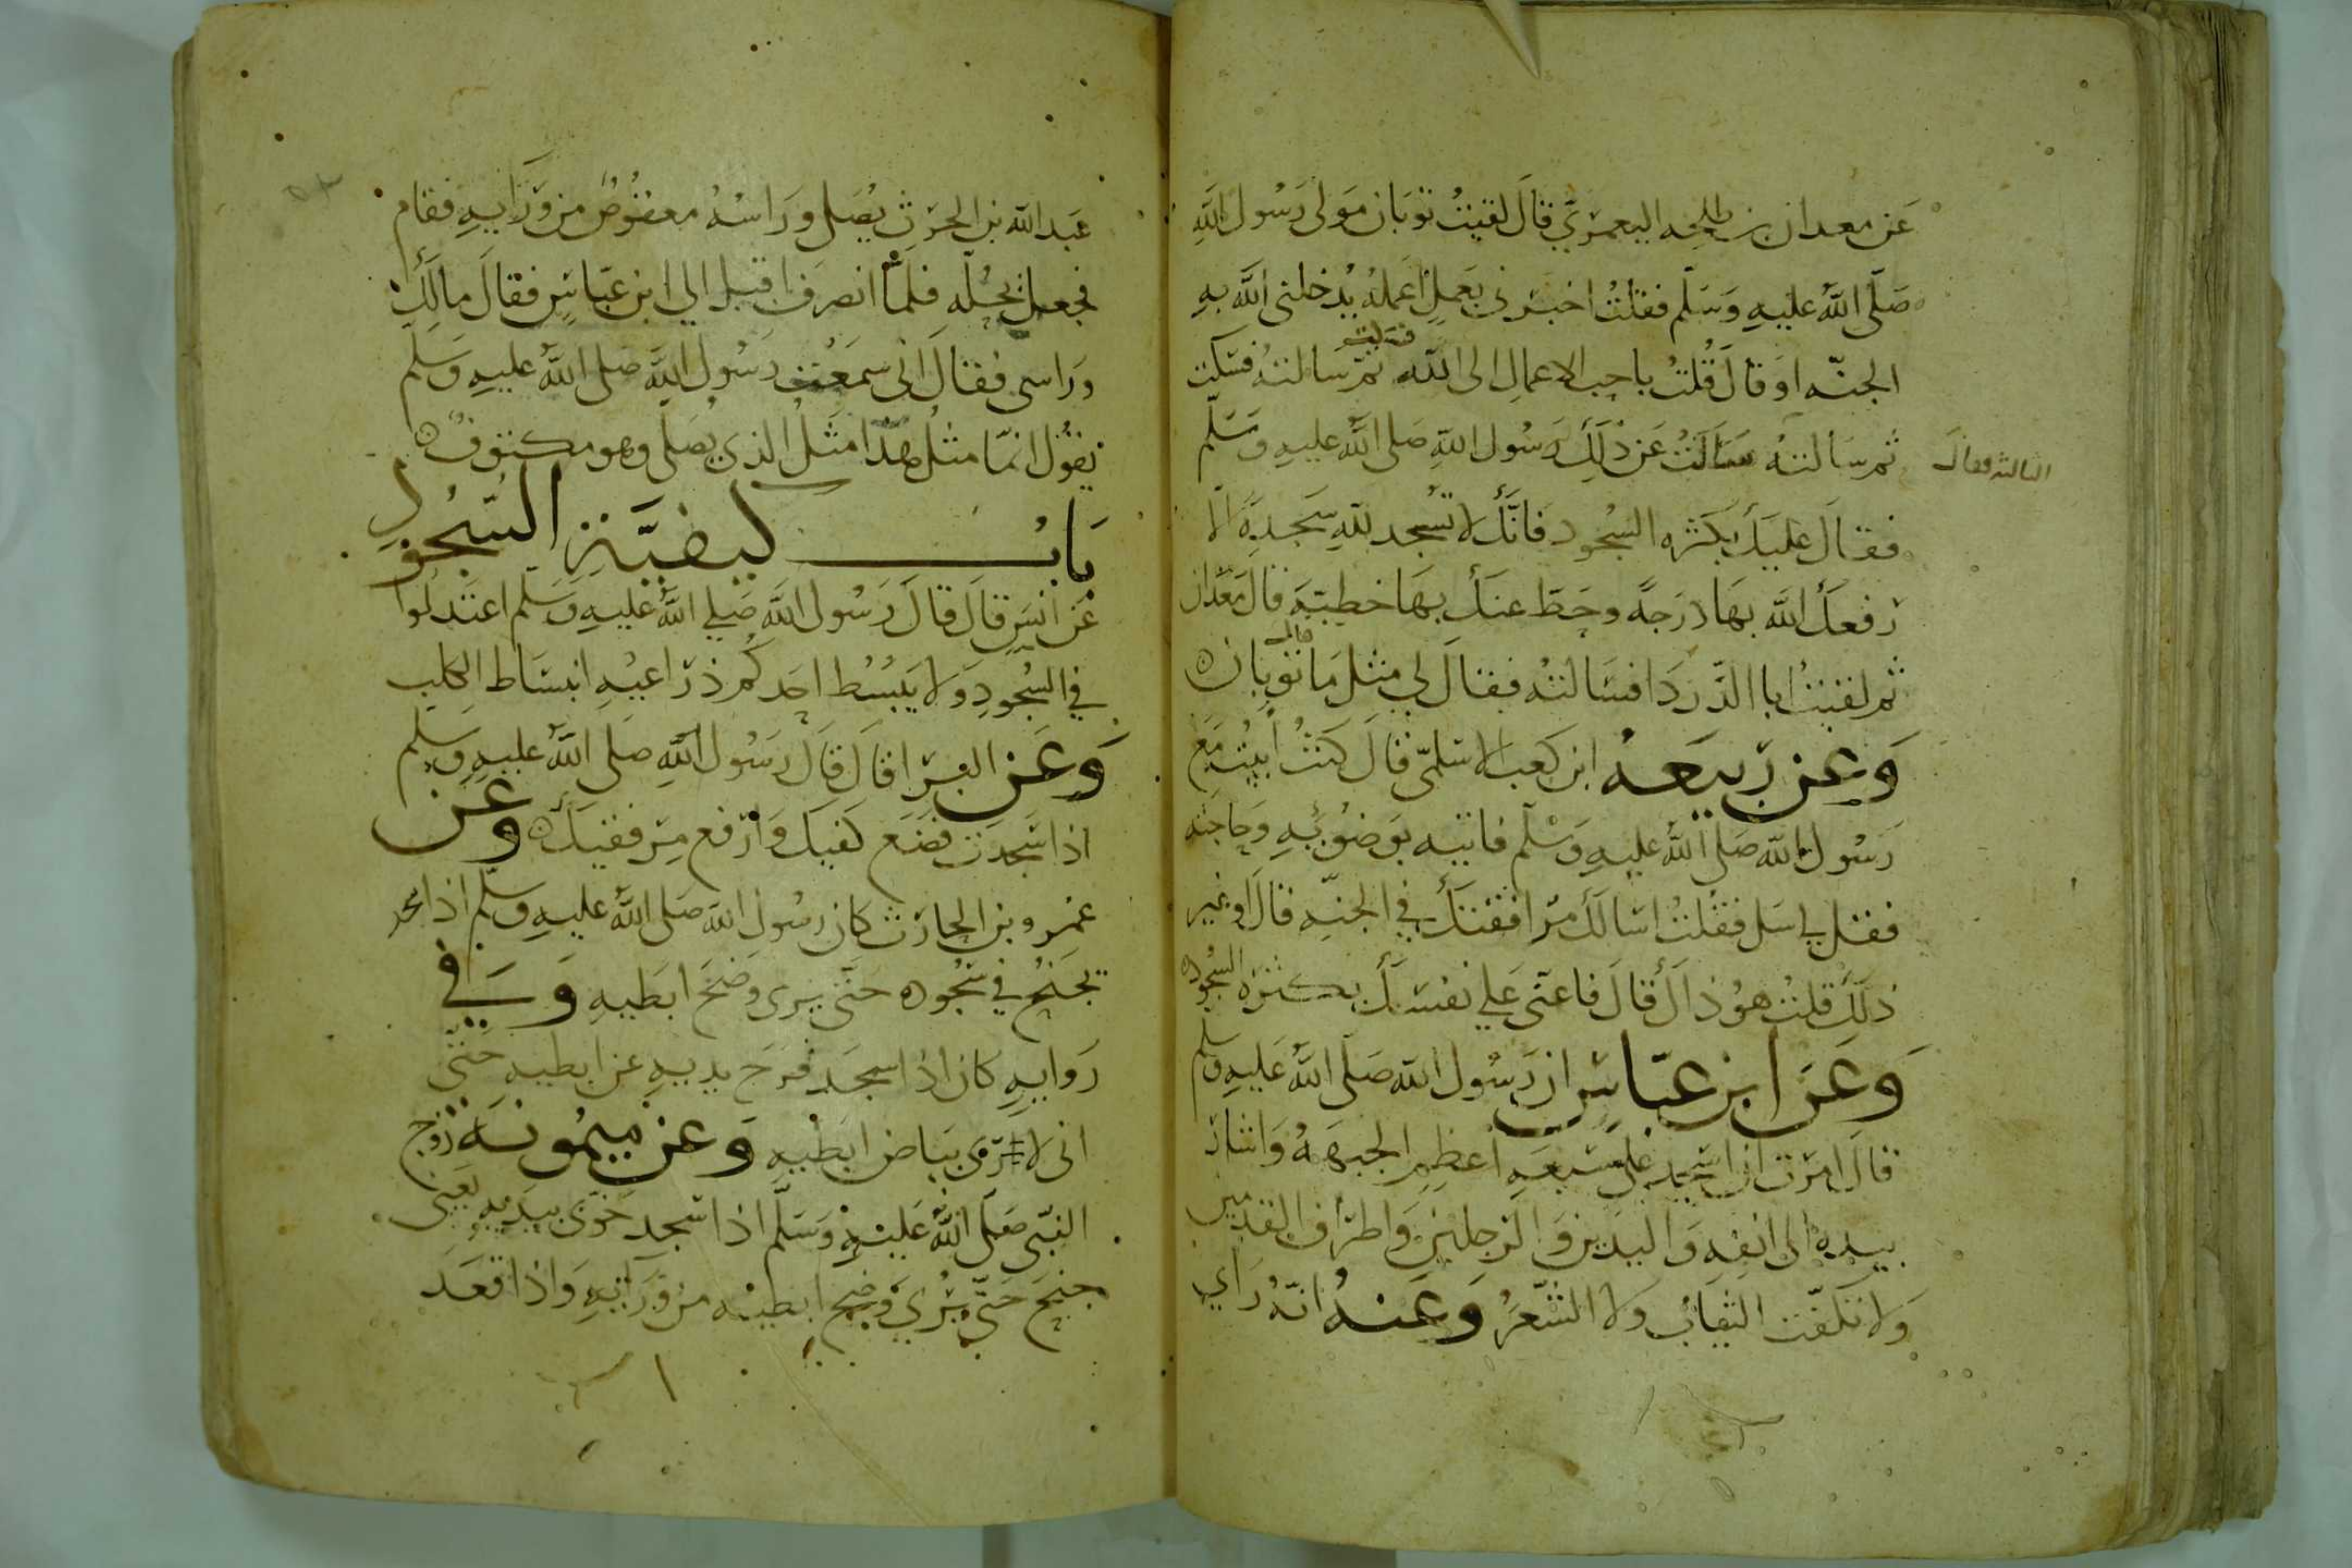 عَن معدان بن طلحه اليعمَريّ قالَ لقيتُ ثوبَان مَولى رَسُول اللَّهِ
صَلّى اللَّهُ عليهِ وَسَلّم فقلتُ اخبرني بعَملٍ اعمَلهُ يُدخلنى اللَّه بهِ
الجنّه اوَ قالَ قُلتُ باحبِ الاعمالِ الى اللَّه فسَكتَ ثمّ سَالتهُ فسَكت
ثم سَالتهُ سَالَتُ عَن ذلِكَ رَسُول اللهِ صَلى اللَّهُ عليهِ وسَلّم
الثالثه فقال
فقالَ عليكَ بكَثره السّجُود فانّكَ لا تسجد للهِ سَجدةً الّا
رَفعكَ اللَّه بهَا دَرَجةً وحَطّ عنكَ بهَا خطيةً قالَ مَعدَان
ثم لقيتُ ابا الدّردَا فسَالتهُ فقالَ لي مثل مَا قال ثوبان
وَعن رَبيعَهُ ابن كعب الاسْلميّ قالَ كنتُ ابيتُ مَع
رَسُول اللَّه صَلى اللَّهُ عليهِ وَسْلم فاتيه بوَضُوئهِ وحَاجَته
فقل لي سَل فقلتُ اسَالكَ مرَافقتكَ في الجنّه قالَ او غير
ذلكَ قلتُ هوُ ذالَ قالَ فاعنّى علي نفسَكَ بكثرَه السّجُود
وَعَن ابن عبّاسٍ ان رَسُول اللَّه صَلَّى اللَّهُ عَليهِ وسَلم
قالَ امرت ان اسجد على سَبعَهِ اَعظمٍ الجبهَهُ وَاشَار
بيده الى انفِه وَاليدَين وَالرجلين وَاطرَاف القدمَين
وَلا نكفّت الثيَابَ وَلا الشّعَرُ وَعَنهُ انّهُ رَاي
عَبد اللَّه بن الحرَث يُصَلي ورَاسُهُ معقوُصٌ من وَرَايهِ فقام
فجعل يحُلّه فلمّا انصرَف اقبل الي ابن عَبّاسٍ فقالَ مالكَ
ورَاسى فقالَ انى سمَعتُ رَسُول اللَّهِ صَلى اللَّهُ عليهِ وَسَلم
يقوُل انمّا مثلُ هَذا مَثَلُ الذي يُصَلى وهو مكتوفٌ
بَابُ كيفيَّة السّجُود
عَن انسٍ قالَ قالَ رَسُول اللَّهِ صَلي اللَّهُ عليهِ وَسَلم اعتَدلُوا
في السّجُودِ وَلا يَبسُط احَدكُم ذرَاعيْهِ انبسَاط الكلبِ
وَعَن البرَا قالَ قالَ رَسُول اللَّهِ صَلى اللَّهُ عليهِ وسَلم
اذا سَجدَت فضَع كفيكَ وَارْفع مِرفقيكَ وعَن
عمْرو بن الحارَث كان رَسُول اللَّه صَلى اللَّهُ عليهِ وسَلّم اذا سجد
تجَنحُ في سُجُوده حَتّى يرى وَضحَ ابطيهِ وَفي
رَوايهِ كان اذا سجَد فرَج يديهِ عن ابطيهِ حَتّي
انى لا رَى بيَاض ابطيهِ وَعن ميمُونَهَ زَوج
النّبى صَلّى اللَّهُ عَليْهِ وَسَلّم اذا سْجد خوّى بيدَيهِ يَعنى
جنحَ حَتّى يُرَى وَضحَ ابطيْه من وَرَائهِ وَاذا قعَدَ